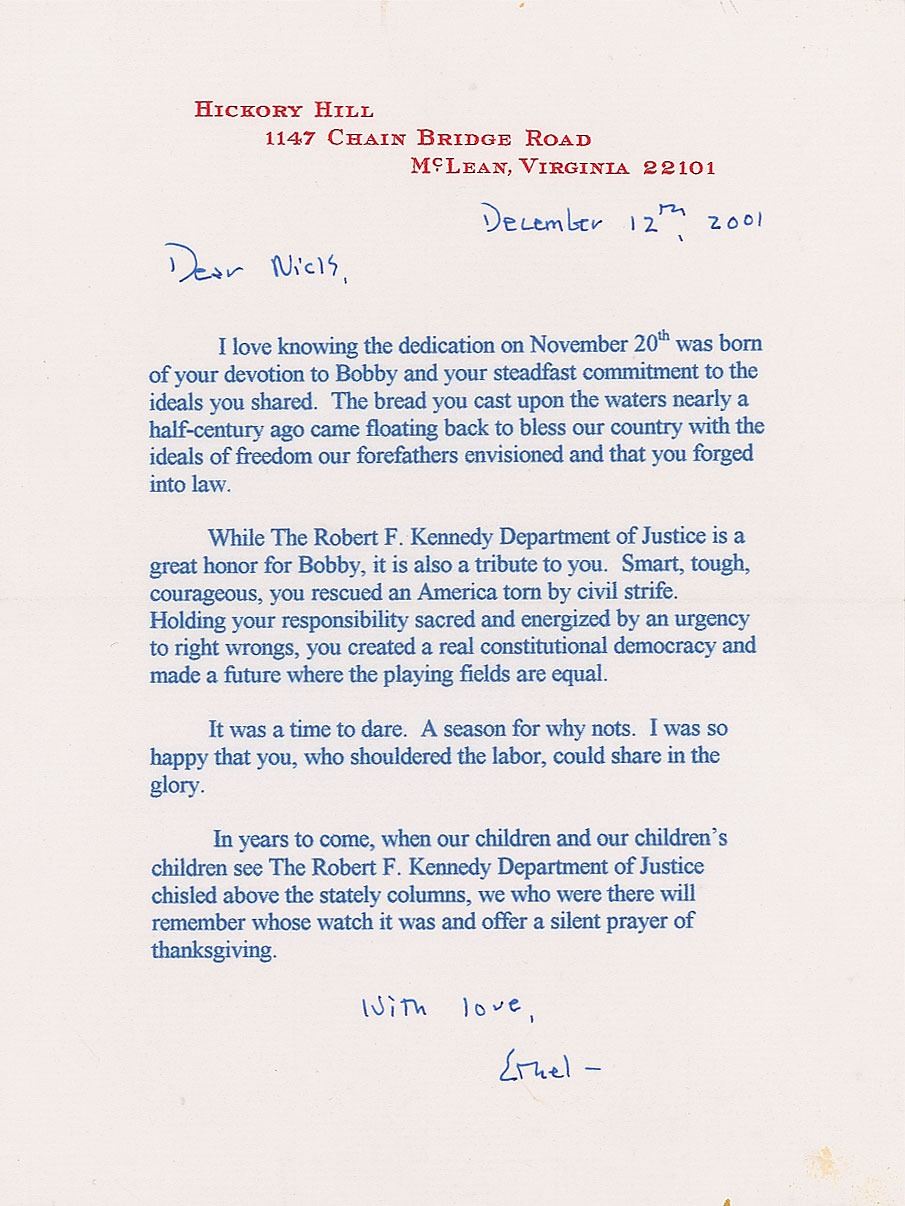 HICKORY HILL
1147 CHAIN BRIDGE ROAD
McLEAN, VIRGINIA 22101
December 12th, 2001
Dear Nicls,
I love knowing the dedication on November 20th was born
of your devotion to Bobby and your steadfast commitment to the
ideals you shared. The bread you cast upon the waters nearly a
half-century ago came floating back to bless our country with the
ideals of freedom our forefathers envisioned and that you forged
into law.
While The Robert F. Kennedy Department of Justice is a
great honor for Bobby, it is also a tribute to you. Smart, tough,
courageous, you rescued an America torn by civil strife.
Holding your responsibility sacred and energized by an urgency
to right wrongs, you created a real constitutional democracy and
made a future where the playing fields are equal.
It was a time to dare. A season for why nots. I was so
happy that you, who shouldered the labor, could share in the
glory.
In years to come, when our children and our children's
children see The Robert F. Kennedy Department of Justice
chisled above the stately columns, we who were there will
remember whose watch it was and offer a silent prayer of
thanksgiving.
With love,
Ethel –